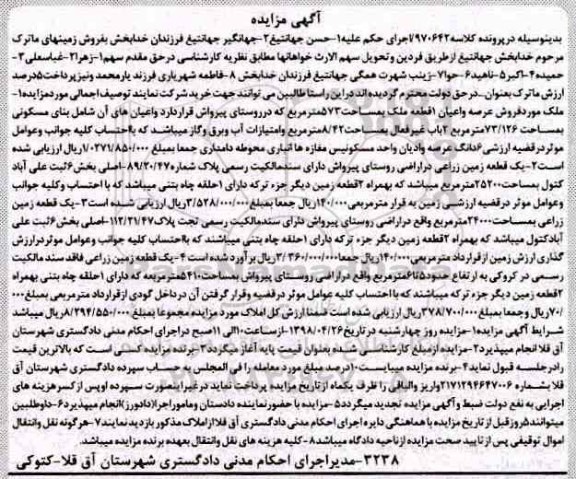 آگهی مزایده
بدینوسیله درپرونده کلاسه ۹۷۰۶۴۲/اجرای حکم علیه۱-حسن جهانتیغ۲-جهانگیر جهانتیغ فرزندان خدابخش بفروش زمینهای ماترک
مرحوم خدابخش جهانتیغ ازطریق فردین وتحویل سهم الارث خواهانها مطابق نظریه کارشناسی درحق مقدم سهم۱-زهرا۲-غباسعلی۳-
حمیده۴-اکبر۵-ناهید۶-حوا۷-زینب شهرت همگی جهانتیغ فرزندان خدابخش ۸-فاطمه شهریاری فرزند یارمحمد ونیزپرداخت۵درصد
ارزش ماترک بعنوان..درحق دولت محترم گردیده اند دراین راستا طالبین می توانند جهت خرید شرکت نمایند توصیف اجمالی موردمزایده۱-
ملک موردفروش عرصه واعیان ۱قطعه ملک بمساحت۵۷۳مترمربع که درروستای پیرواش قراردارد واعیان های آن شامل بنای مسکونی
بمساحت ۷۳/۱۲۶ مترمربع ۲باب غیرفعال بمساحت۸/۴۲مترمربع وامتیازات آب وبرق وگاز میباشد که بااحتساب کلیه جوانب وعوامل
موثر درقضیه ارزشی ۶دانگ عرصه واعیان واحد مسکونیس مغازه ها انباری محوطه دامداری جمعا بمبلغ ۱/۰۷۱/۸۵۰/۰۰۰ریال ارزیابی شده
است۲-یک قطعه زمین زراعی دراراضی روستای پیرواش دارای سندمالکیت رسمی پلاک شماره۸۹/۳۰/۴۷-اصلی بخش۶ثبت علی آباد
کتول بمساحت۲۵۲۰۰مترمربع میباشد که بهمراه ۲قطعه زمین دیگر جزء ترکه دارای ۱حلقه چاه بتنی میباشد که با احتساب وکلیه جوانب
وعوامل موثر درقضیه ارزشی زمین به قرار مترمربعی ۱۴۰/۰۰۰ریال جمعا بمبلغ ۳/۵۲۸/۰۰۰/۰۰۰ریال ارزیابی شده است۳-یک قطعه زمین
زراعی بمساحت۲۴۰۰۰مترمربع واقع دراراضی روستای پیرواش دارای سندمالکیت رسمی تحت پلاک۱۱۲/۳۱/۴۷-اصلی بخش۶ثبت علی
آبادکتول میباشد که بهمراه ۲قطعه زمین دیگر جزء ترکه دارای ۱حلقه چاه بتنی میباشند که بااحتساب کلیه جوانب وعوامل موثردرارزش
گذاری ارزش زمین ازقرارداد مترمربعی۱۴۰/۰۰۰ریال جمعا۳/۳۶۰/۰۰۰/۰۰۰ریال برآورد شده است ۴-یک قطعه زمین زراعی فاقد سند مالکیت
رسمی در کروکی به ارتفاع حدود۶تا۵مترمربع واقع دراراضی روستای پیرواش بمساحت۵۴۱۰مترمربعه که دارای ۱حلقه چاه بتنی بهمراه
۲قطعه زمین دیگر جزء ترکه میباشند که بااحتساب کلیه عوامل موثر درقضیه وقرار گرفتن آن درداخل گودی ازقرارداد مترمربعی بمبلغ۰۰۰
/۷۰ریال وجمعا بمبلغ ۳۷۸/۷۰۰/۰۰۰ریال ارزیابی شده است ضمنا ارزش کل املاک مورد مزایده مجموعا بمبلغ ۸/۲۹۴/۵۵۰/۰۰۰ریال میباشد
شرایط آگهی مزایده۱-مزایده روز چهارشنبه در تاریخ۱۳۹۸/۰۴/۲۶-ازساعت۱۰الی ۱۱صبح دراجرای احکام مدنی دادگستری شهرستان
آق قلا انجام میپذیرد۲-مزایده ازمبلغ کارشناسی شده بعنوان قیمت پایه آغاز میگردد۳-برنده مزایده کسی است که بالاترین قیمت
رادرجلسه قبول نماید۴-برنده مزایده میبایست۱۰درصد مبلغ مورد معامله را فی المجلس به حساب سپرده دادگستری شهرستان آق
قلا بشماره ۲۱۷۱۲۹۴۶۴۷۰۰۶واریز والباقی را ظرف یکماه ازتاریخ مزایده پرداخت نماید درغیراینصورت سپرده اوپس از کسرهزینه های
اجرایی به نفع دولت ضبط وآگهی مزایده تجدید میگردد۵-مزایده باحضورنماینده دادستان وماموراجرا(دادورز)انجام میپذیرد۶-داوطلبین
میتوانند۵روزقبل از تاریخ مزایده با هماهنگی دایره اجرای احکام مدنی دادگستری آق قلاازاملاک مذکور بازدید نمایند۷-هرگونه نقل وانتقال
اموال توقیفی پس ازتایید صحت مزایده ازناحیه دادگاه میباشد۸-کلیه هزینه های نقل وانتقال بعهده برنده مزایده میباشد.
۳۲۳۸-مدیراجرای احکام مدنی دادگستری شهرستان آق قلا-کتوکی